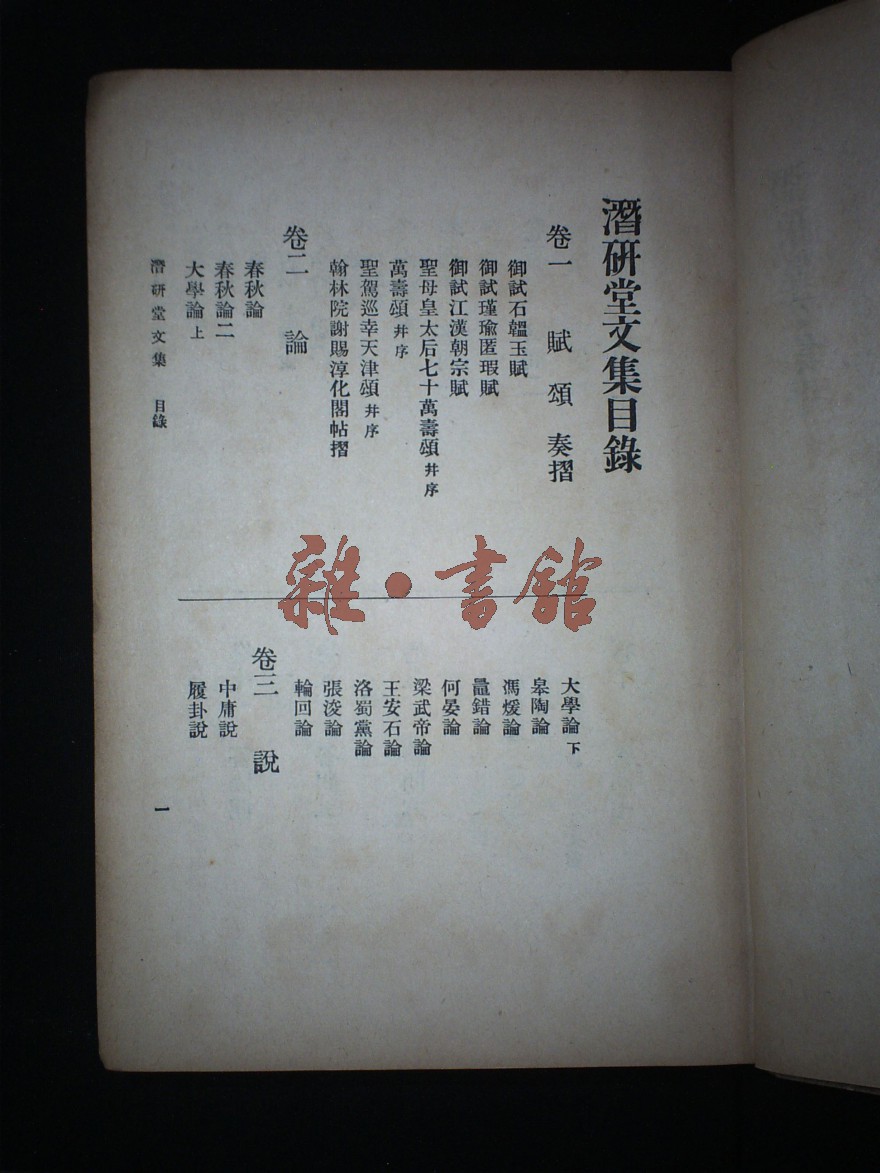 潛研堂文集目錄
卷一 賦 頌 奏摺
御試石韞玉賦
御試瑾瑜匿瑕賦
御試江漢朝宗賦
聖母皇太后七十萬壽頌 幷序
萬壽頌 幷序
聖駕巡幸天津頌 幷序
翰林院謝賜淳化閣帖摺
卷二 論
春秋論
春秋論二
大學論 上
大學論 下
皋陶論
馮煖論
鼂錯論
何晏論
梁武帝論
王安石論
洛蜀黨論
張浚論
輪回論
卷三 說
中庸說
履卦說
潛研堂文集 目錄
一
雜·書館